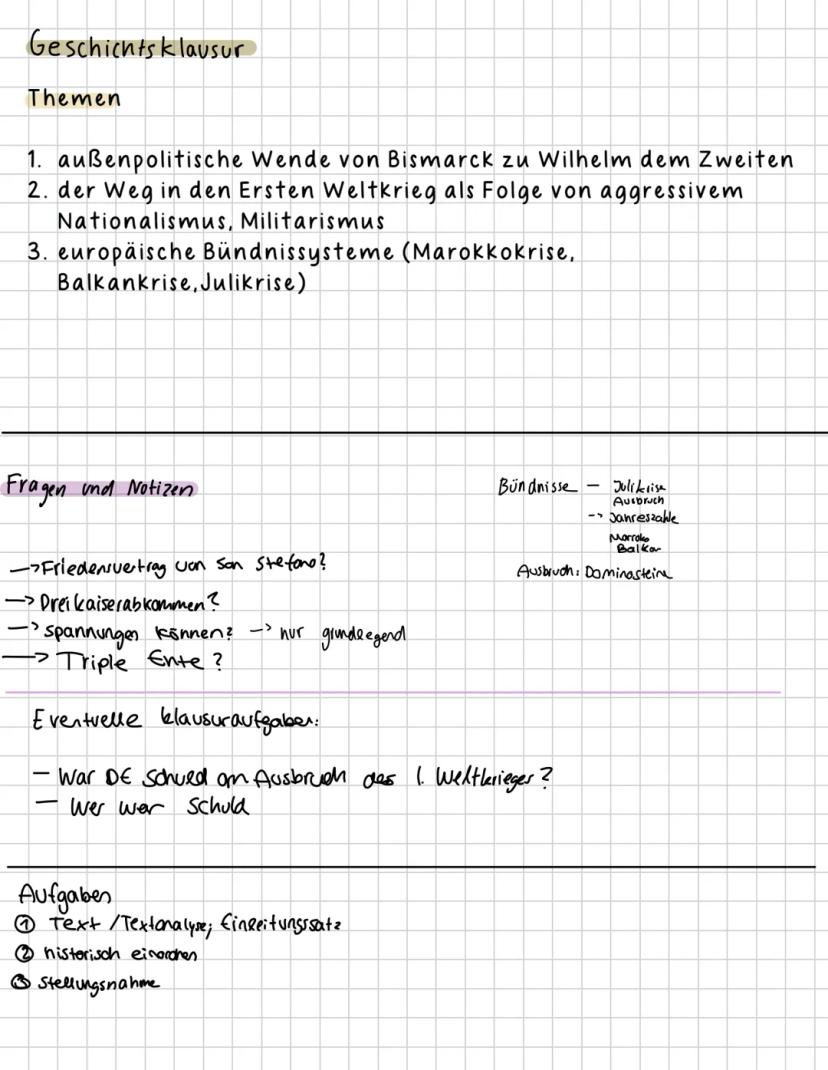 Geschichtsklausur
Themen
1. außenpolitische Wende von Bismarck zu Wilhelm dem Zweiten
2. der Weg in den Ersten Weltkrieg als Folge von aggressivem
Nationalismus, Militarismus
3. europäische Bündnissysteme (Marokkokrise,
Balkankrise, Julikrise)
Fragen und Notizen
Bündnisse – Julikrise
Ausbruch
--> Jahreszahle
Marroko
Balkan
Ausbruch: Dominosteine
—> Friedensvertrag von San Stefano?
—> Dreikaiserabkommen?
—> Spannungen können? —> nur grundlegend
—> Triple Ente?
Eventuelle Klausuraufgaben:
– War DE Schuld am Ausbruch des 1. Weltkrieges?
– Wer war Schuld
Aufgaben
① Text / Textanalyse; Einleitungssatz
② historisch einordnen
③ Stellungsnahme